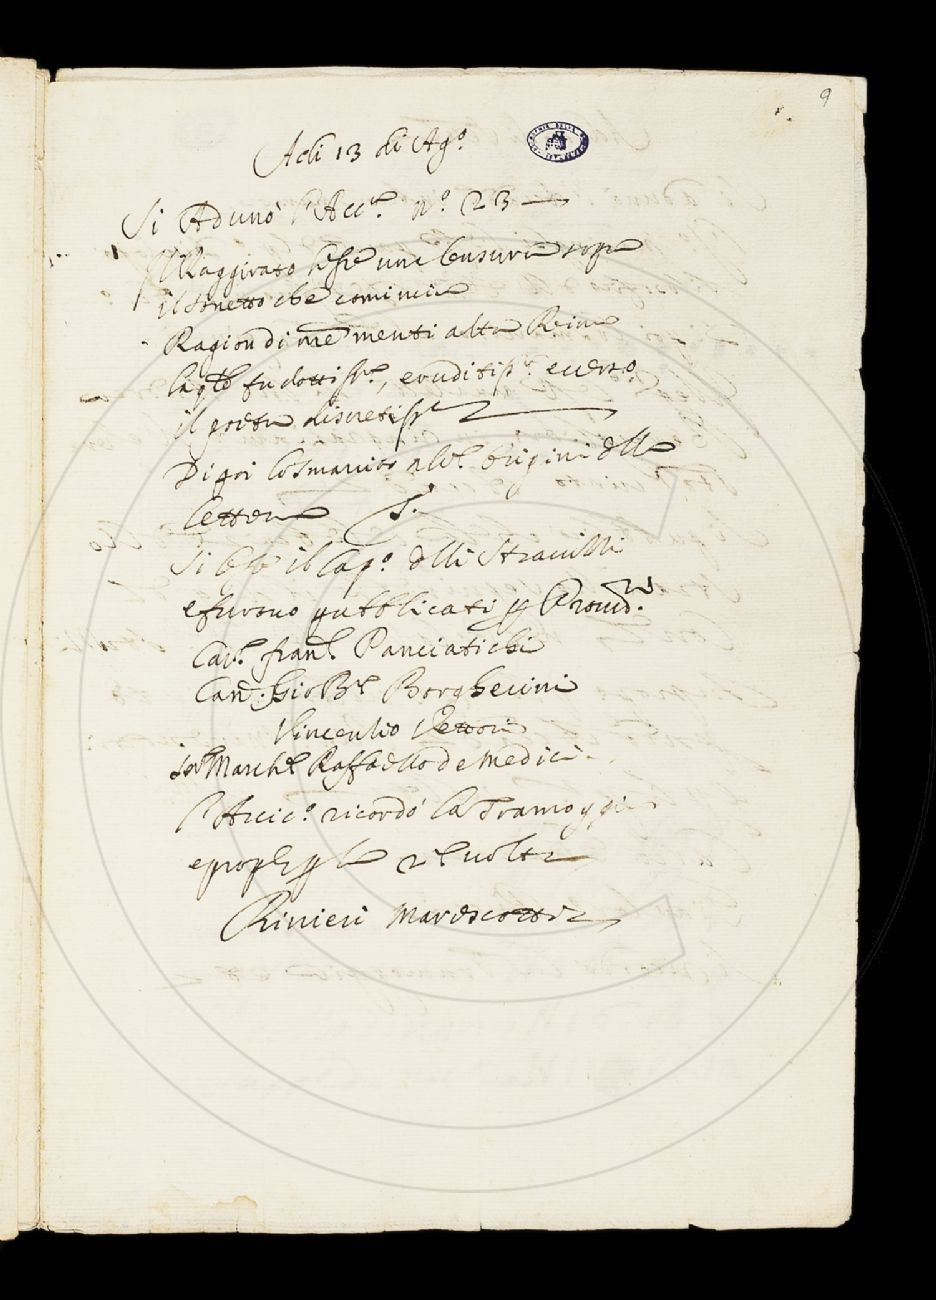 9
Adi 13 di Ag.o
Si Adunò l'Acc.a n.o 23
Il Raggirato lesse una Censura sopra
il sonetto che comincia
Ragion di me menti alta Reina
la q.le fu dottiss.a, eruditiss.a e verso
il poeta discretiss.a
Di poi lo Smarrito all' origini della
lettera S.
Si lesse il Cap.o delli Stravizzi
e furono pubblicati p Provved.ri
Cav.e Fran.o Panciatichi
Can.o Gio B.a Borgherini
Vincenzio Vettori
Marchese Raffaello de Medici
l'Arcic.o ricordò la Tramoggia
e p la 2.a volta
Rinieri Marescotti